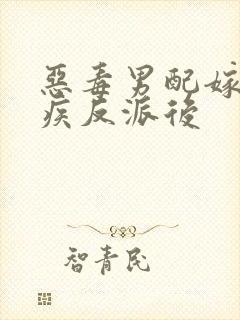 惡毒男配嫁
疾反派後
智青民